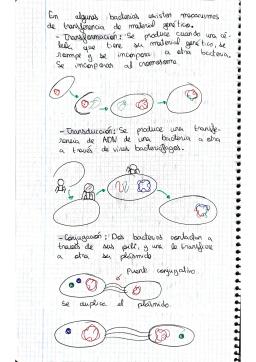 En algunas bacterias existen mecanismos
de transferencia de material genético.
- Transformación: Se produce cuando una cé-
lula, que tiene su material genético, se
rompe y se incorpora a otra bacteria.
Se incorporan al cromosoma.
- Transducción: Se produce una transfe-
rencia de ADN de una bacteria a otra
a través de virus bacteriófagos.
- Conjugación: Dos bacterias contactan a
través de sus pili, y una le transfiere
a otra su plásmido
Puente conjugativo.
Se duplica el plásmido.